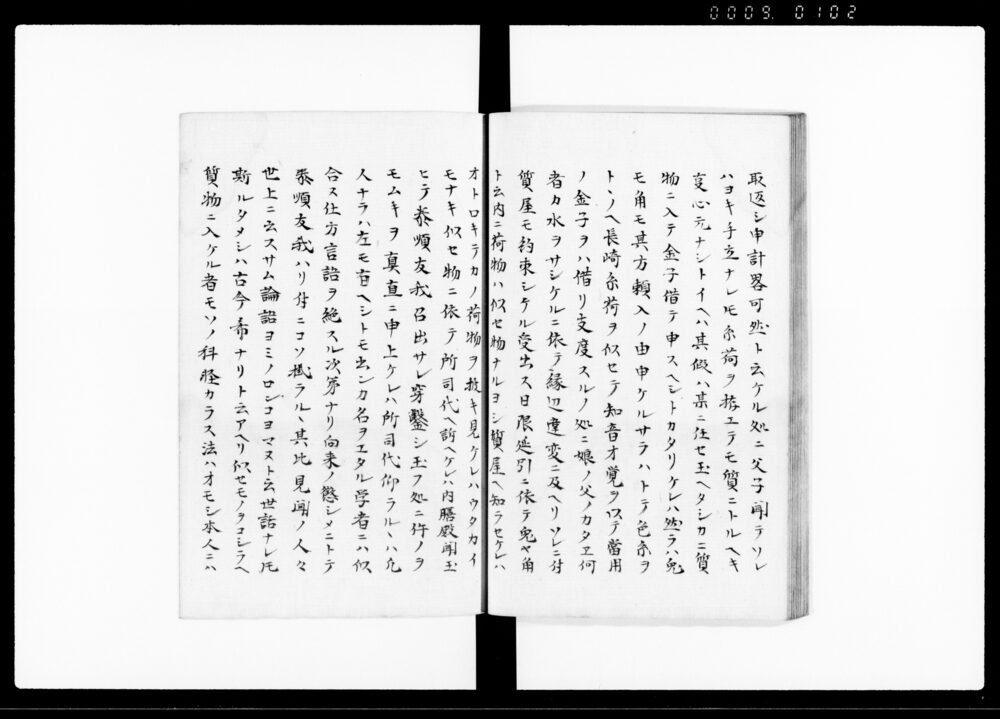 0009. 0102
取返シ申計畧可然ト云ケル処ニ父子聞テソレ
ハヨキ手立ナレ𪜈糸荷ヲ拵エテモ質ニトルヘキ
亥心元ナシトイヘハ其假ハ某ニ任セ玉ヘタシカニ質
物ニ入テ金子借テ申スヘシトカタリケレハ然ラハ兎
モ角モ其方頼入ノ由申ケルサラハトテ色糸ヲ
トヽノヘ長崎糸荷ヲ似セテ知音才覚ヲ以テ當用
ノ金子ヲハ借リ支度スルノ処ニ娘ノ父ノカタヱ何
者カ水ヲサシケルニ依テ縁辺違変ニ及ヘリソレニ付
質屋モ約束シケル受出ス日限延引ニ依テ兎ヤ角
ト云内ニ荷物ハ似セ物ナルヨシ質屋ヘ知ラセケレハ
オトロキテカノ荷物ヲ披キ見ケレハウタカイ
モナキ似セ物ニ依テ所司代ヘ訴ヘケレハ内膳殿聞玉
ヒテ泰順友我召出サレ穿鑿シ玉フ処ニ件ノヲ
モムキヲ真直ニ申上ケレハ所司代仰ラルヽハ凡
人ナラハ左モ有ヘシトモ云ンカ名ヲヱタル学者ニハ似
合ス仕方言語ヲ絶スル次第ナリ向来ノ懲シメニトテ
泰順友我ハリ付ニコソ掛ラルヽ其比見聞ノ人々
世上ニ云スサム論語ヨミノロンコヨマスト云世話ナレ𪜈
斯ルタメシハ古今希ナリト云アヘリ似セモノヲコシラヘ
質物ニ入ケル者モソノ科軽カラス法ハオモシ本人ニハ